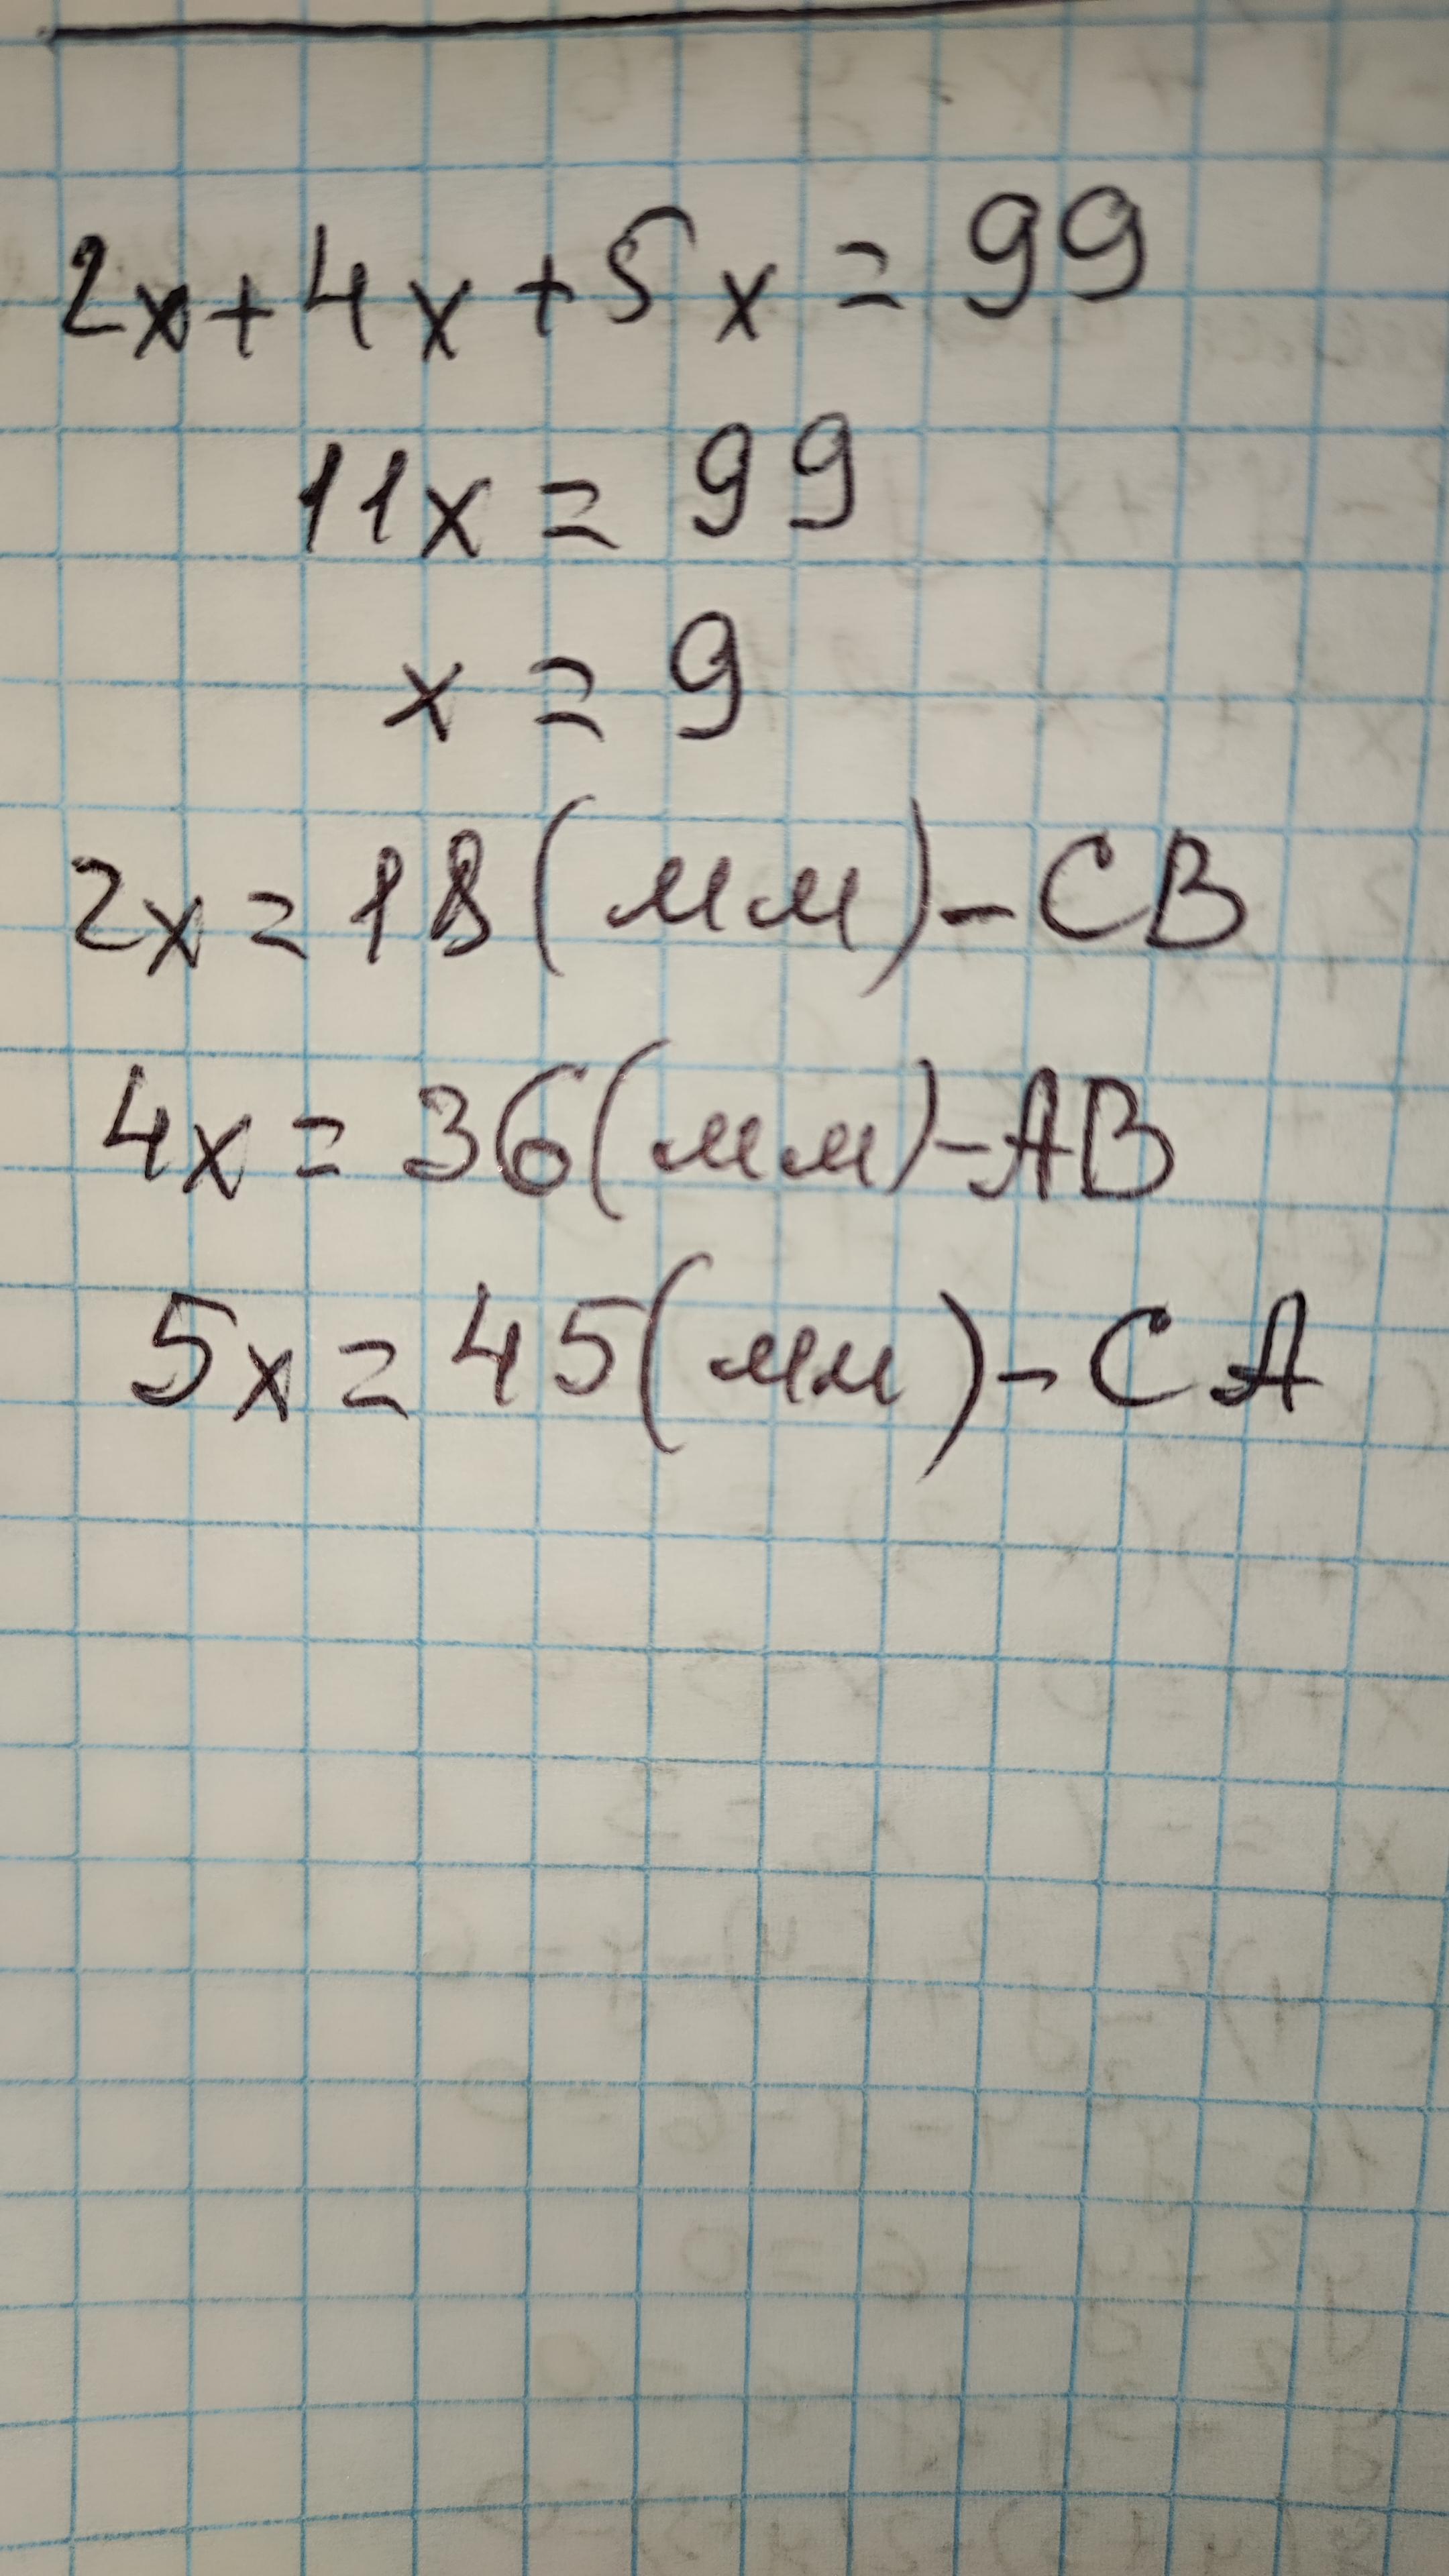 2x+4x+5x=99
11x=99
x=9
2x=18(мм)-СВ
4x=36(мм)-АВ
5x=45(мм)-СА